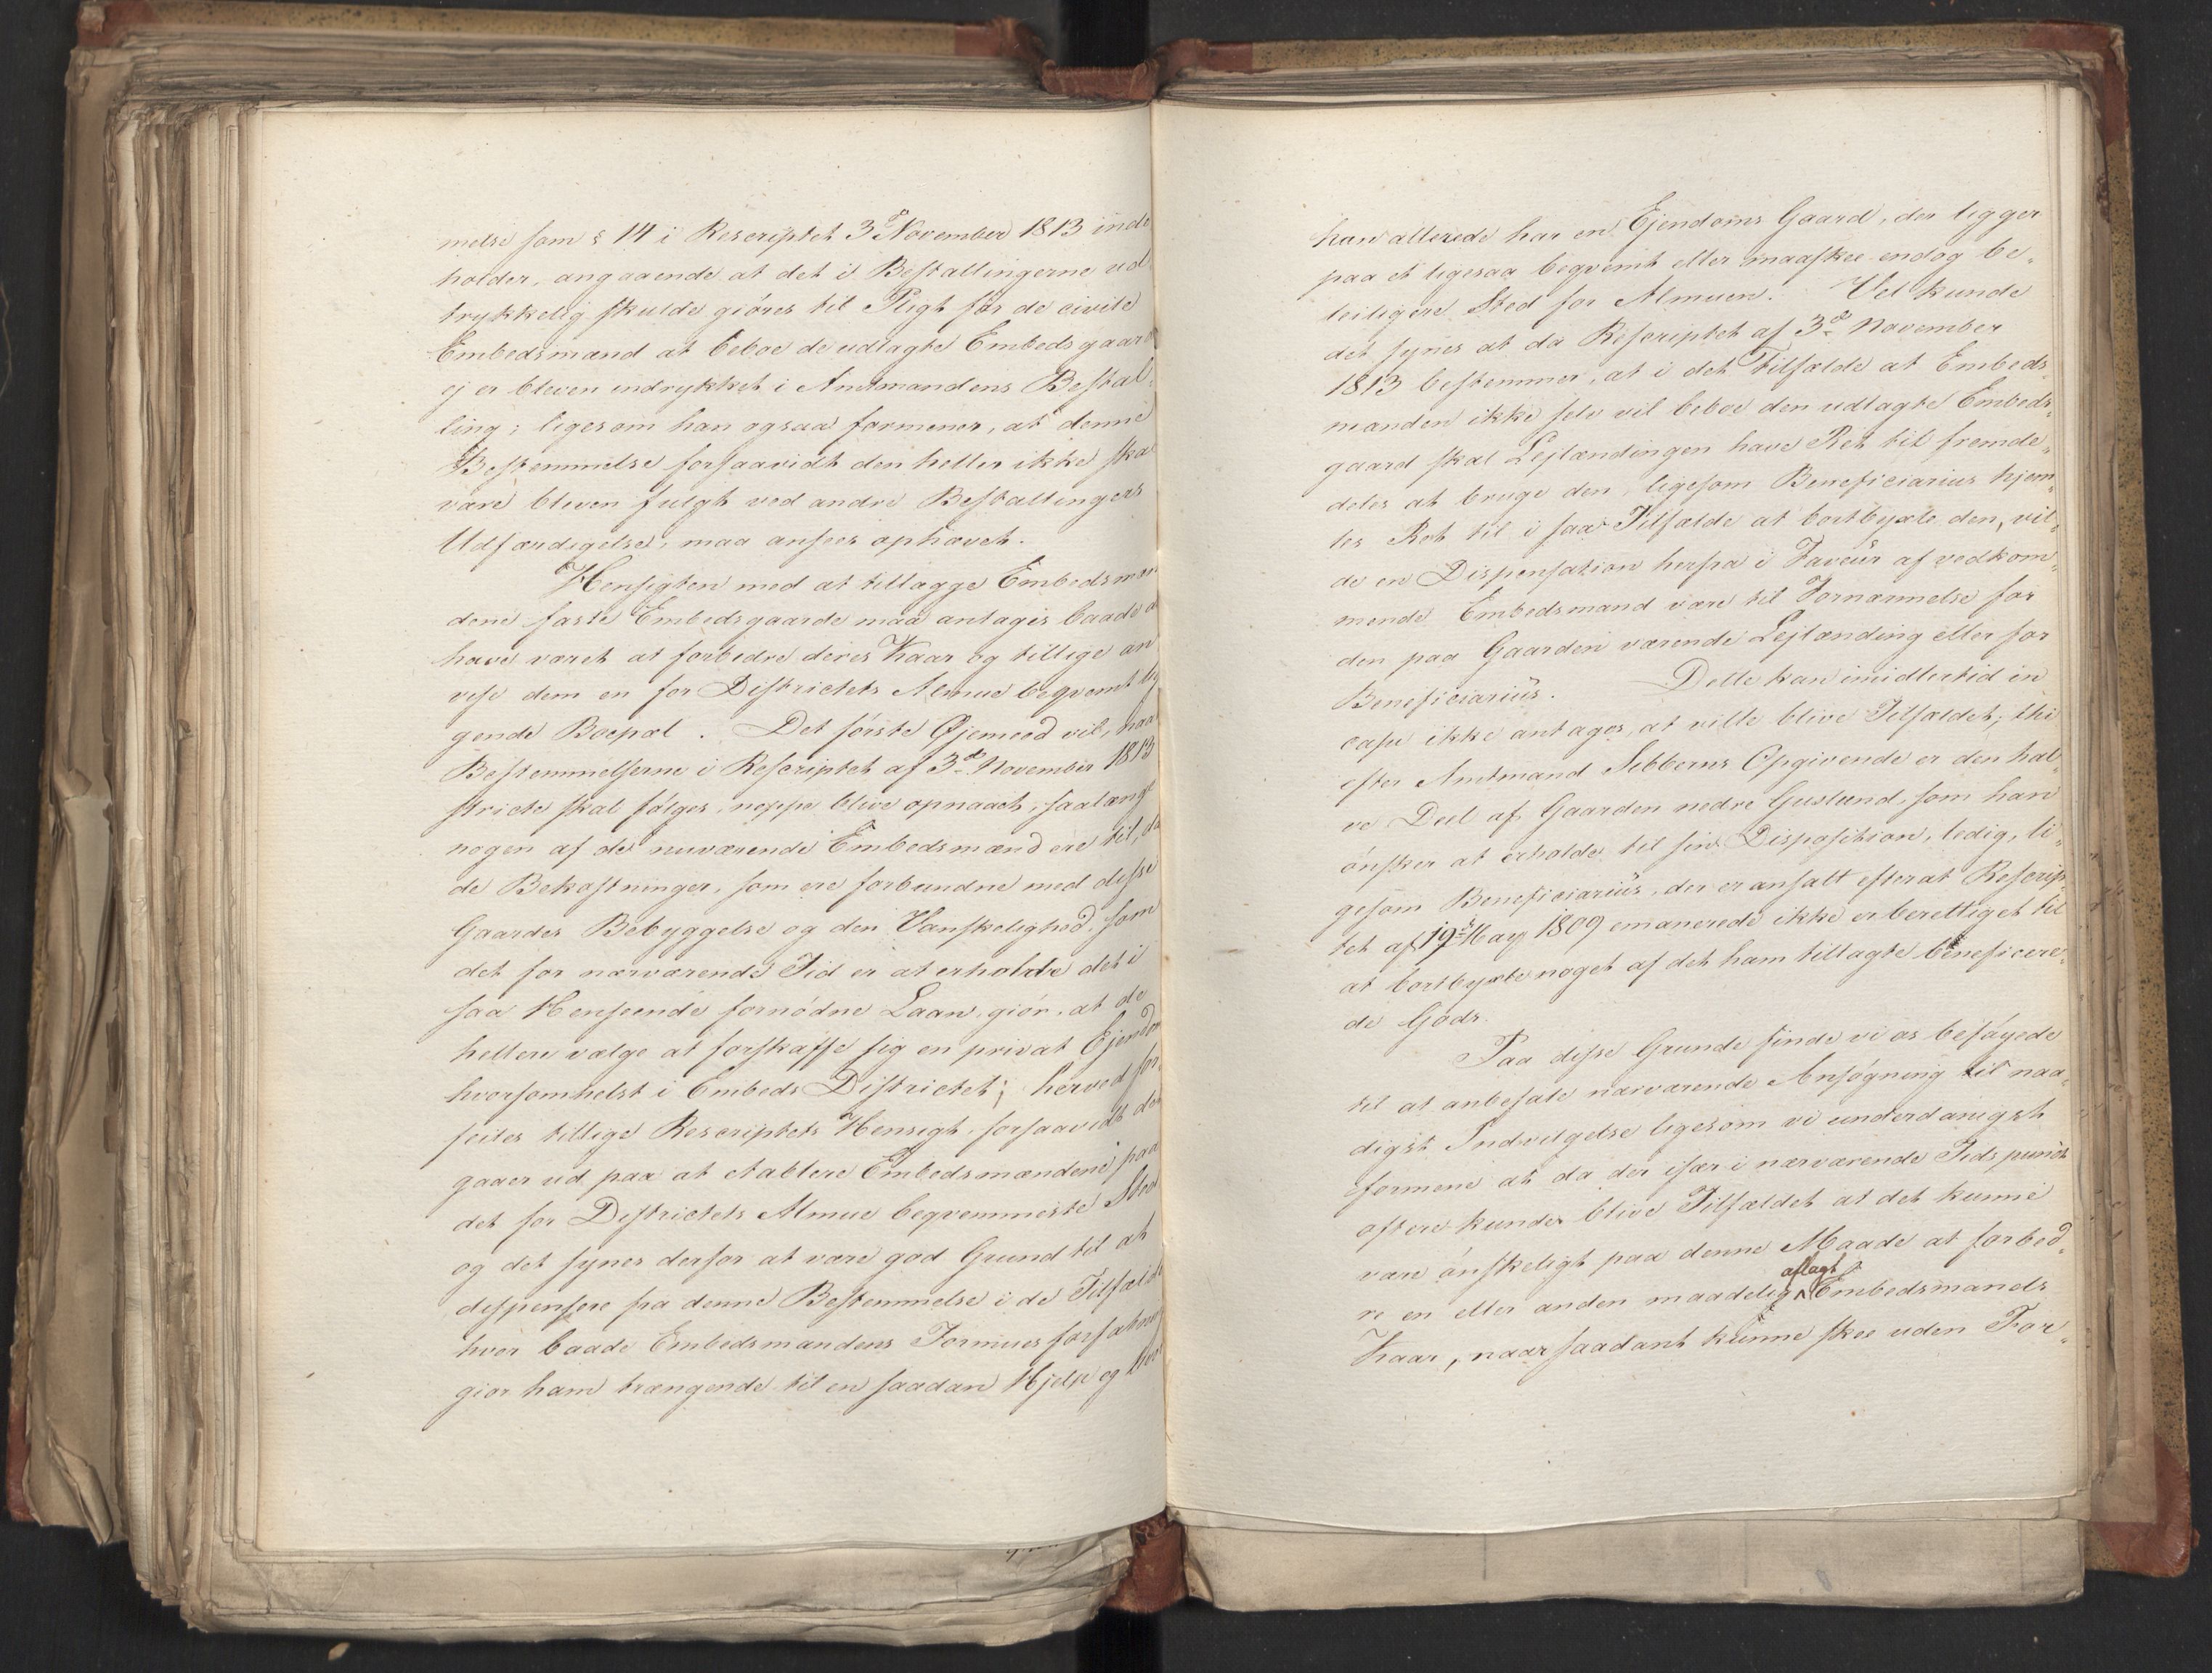 melse som § 14 i Rescriptet 3d November 1813 inde
holder, angaaende at det i Bestallingerne ud
trykkelig skulde giöres til Pligt for de civile
Embedsmænd at beboe de udlagte Embedsgaard
ej er bleven indrykket i Amtmandens Bestal¬
ling; ligesom han ogsaa formener, at denne
Bestemmelse forsaavidt den heller ikke ska
være bleven fulgt ved andre Bestallingers
Udfærdigelse, maa ansees ophævet.
Hensigten med at tillægge Embedsmæn
dene faste Embedsgaarde maa antages baade a
have været at forbedre deres Kaar og tillige an
vise dem en for Districtets Almue beqvemt lig
gende Boepæl. Det förste Øjemeed vil, naar
Bestemmelserne i Rescriptet af 3d November 1813
stricte skal fölges, neppe blive opnaaet, saalænge
nogen af de nuværende Embedsmænd ere til, da
de Bekostninger, som ere forbundne med disse
Gaardes Bebyggelse og den Vanskelighed, som
det for nærværende Tid er at erholde det i
saa Henseende fornödne Laan, giör, at de
hellere vælge at forskaffe sig en privat Ejendom
hvorsomhelst i Embeds Districtet; herved for¬
feiles tillige Rescriptets Hensigt, forsaavidt den
gaaer ud paa at etablere Embedsmændene paa
det for Districtets Almue beqvemmeste Sted
og det synes derfor at være god Grund til at
dispensere fra denne Bestemmelse i de Tilfælde
hvor baade Embedsmandens Formues forfatning
giör ham trængende til en saadan Hjelp og hvor
han allerede har en Ejendoms Gaard, der ligger
paa et ligesaa beqvemt eller maaskee endog be¬
leiligere Sted for Almuen. Vel kunde
det synes at da Rescriptet af 3d November
1813 bestemmer, at i det Tilfælde at Embeds
manden ikke selv vil beboe den udlagte Embeds¬
gaard skal Lejlændingen have Ret til fremde¬
deles at bruge den, ligesom Beneficiarius hjem¬
les Ret til i saa Tilfælde at bortbyxle den, vil¬
de en Dispensation herfra i Faveur af vedkom¬
mende Embedsmand være til Fornærmelse for
den paa Gaarden værende Lejlænding eller for
Beneficiarius. Dette kan imidlertid in
casu ikke antages, at ville blive Tilfældet; thi
efter Amtmand Sibberns Opgivende er den hal¬
ve Deel af Gaarden nedre Guslund, som han
önsker at erholde til sin Disposition, ledig, li¬
gesom Beneficiarius, der er ansatt efterat Rescrip¬
tet af 19d May 1809 emanerede ikke er berettiget til
at bortbyxle noget af det ham tillagte beneficere¬
de Gods.
Paa disse Grunde finde vi os beföyede
til at anbefale nærværende Ansögning til naa¬
digst Indvilgelse ligesom vi underdanigst
formene at da der især i nærværende Tidspunct
oftere kunde blive Tilfældet at det kunne
være önskeligt paa denne Maade at forbed¬
aflagt
re en eller anden maadelig Embedsmands
Kaar, naar saadant kunne skee uden For¬